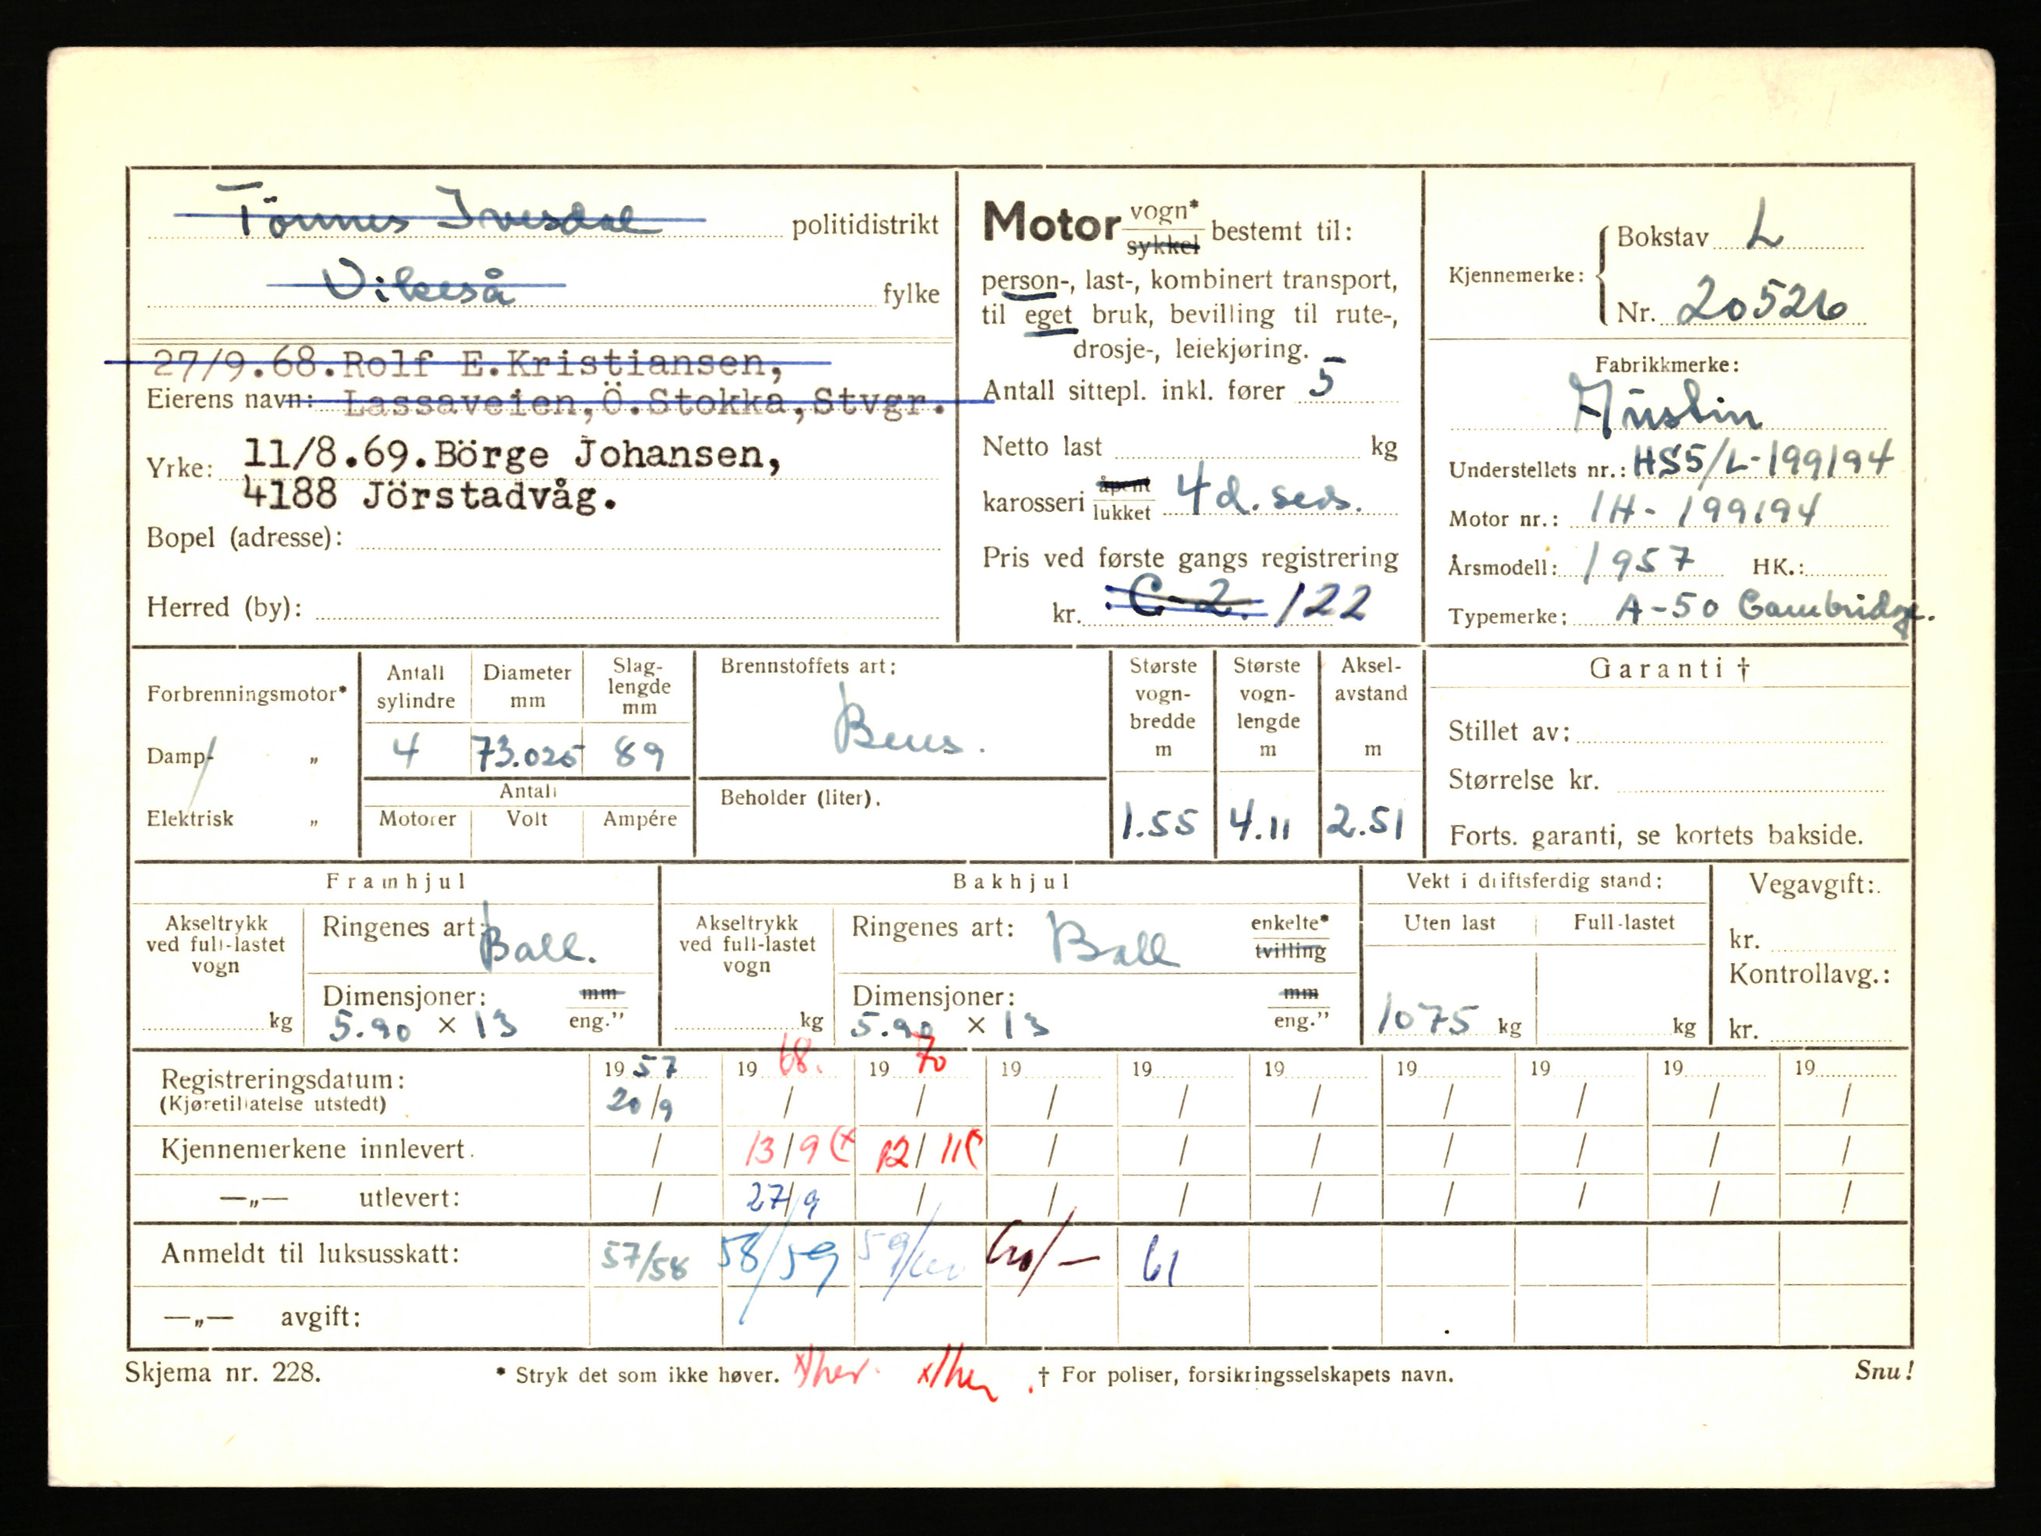 Tönnes Ivesdal politidistrikt
Vikeså fylke
27/9.68.Rolf E.Kristiansen,
Eierens navn: Lassaveien,Ö.Stokka,Stvgr.
Yrke: 11/8.69.Börge Johansen,
4188 Jörstadvåg.
Bopel (adresse):
Herred (by):
Motor vogn* sykkel bestemt til:
person-, last-, kombinert transport,
til eget bruk, bevilling til rute-,
drosje-, leiekjøring.
Antall sittepl. inkl. fører 5
Netto last kg
karosseri åpent lukket 4d. seds.
Pris ved første gangs registrering
kr. C-2. /122
Kjennemerke: Bokstav L
Nr. 20526
Fabrikkmerke:
Austin
Understellets nr.: HS5/L-199194
Motor nr.: 1H-199194
Årsmodell: 1957 HK.:
Typemerke: A-50 Cambridge.
Forbrenningsmotor*
Damp- "
Elektrisk "
Antall sylindre Diameter mm Slag-lengde mm
4 73.025 89
Antall
Motorer Volt Ampére
Brennstoffets art:
Bens.
Beholder (liter).
Største vogn-bredde m Største vogn-lengde m Aksel-avstand m
1.55 4.11 2.51
Garanti †
Stillet av:
Størrelse kr.
Forts. garanti, se kortets bakside.
Framhjul
Akseltrykk ved full-lastet vogn
kg
Ringenes art: Ball.
Dimensjoner: mm
5.90 × 13 eng."
Bakhjul
Akseltrykk ved full-lastet vogn
kg
Ringenes art: Ball enkelte* tvilling
Dimensjoner: mm
5.90 × 13 eng."
Vekt i driftsferdig stand:
Uten last Full-lastet
1075 kg kg
Vegavgift:
kr.
Kontrollavg.:
kr.
Registreringsdatum: 19 57 19 68. 19 70 19 19 19 19 19 19 19
(Kjøretillatelse utstedt) 20/9 / / / / / / / / /
Kjennemerkene innlevert. / 13/9 (x 12/11( / / / / / / /
—„— utlevert: / 27/9 / / / / / / / /
Anmeldt til luksusskatt: 57/58 58/59 59/60 60/— 61
—„— avgift:
Skjema nr. 228. * Stryk det som ikke høver. x/her. x/her. † For poliser, forsikringsselskapets navn. Snu!